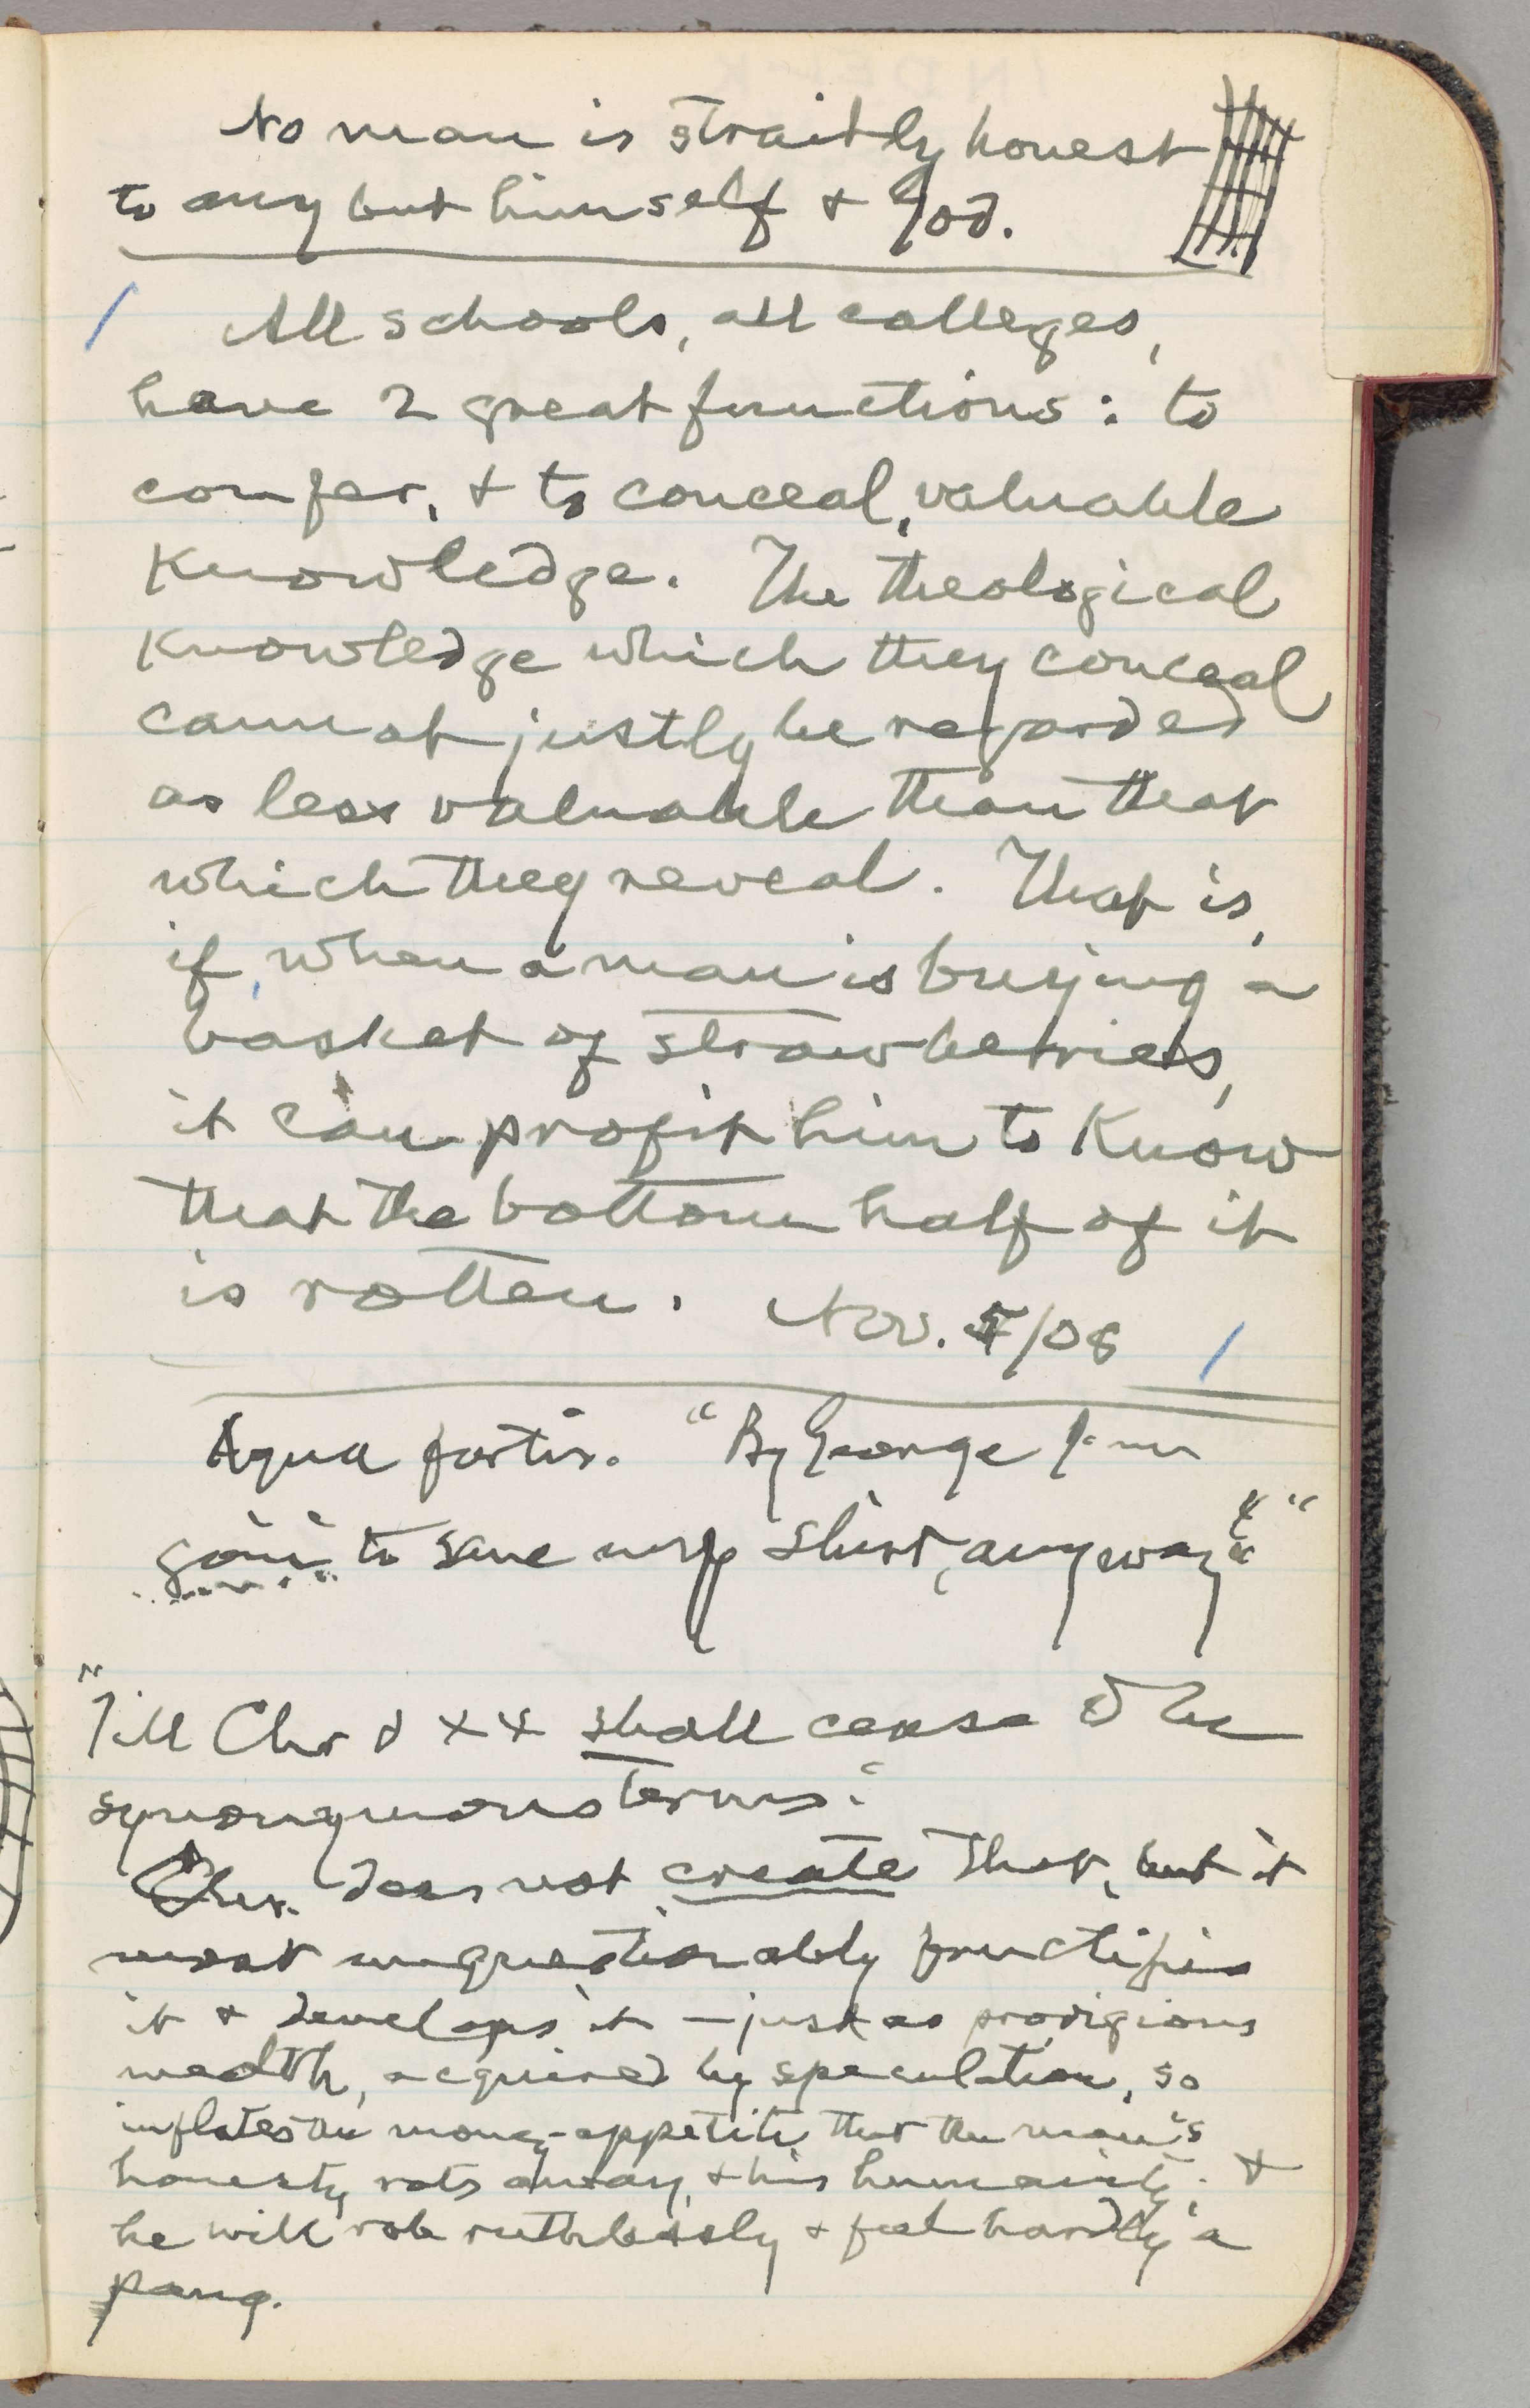 No man is straitly honest
to any but himself & God.
All schools, all colleges,
have 2 great functions: to
confer, & to conceal, valuable
knowledge. The theological
knowledge which they conceal
cannot justly be regarded
as less valuable than that
which they reveal. That is,
if, when a man is buying a
basket of strawberries,
it can profit him to know
that the bottom half of it
is rotten. Nov. 4/08
Aqua fortis. "By George I'm
goin' to save my shirt, anyway!"
"Till Chr & xx shall cease to be
synonymous terms."
Chr. does not create that, but it
most unquestionably fructifies
it & develops it – just as prodigious
wealth, acquired by speculation, so
inflates the money-appetite that the man's
honesty rots away, & his humanity; &
he will rob ruthlessly & feel hardly a
pang.